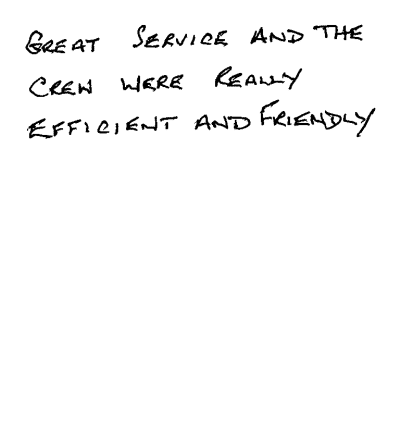 GREAT SERVICE AND THE
CREW WERE REALLY
EFFICIENT AND FRIENDLY